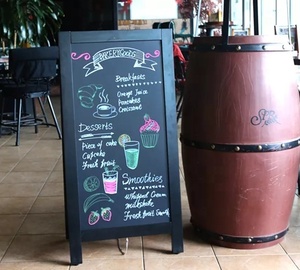 Breakfasts
Orange Juice
Pancakes
Croissant
Desserts
Piece of cake
Cupcake
Fresh fruit
Smoothies
Whipped Cream
milkshake
Fresh fruit